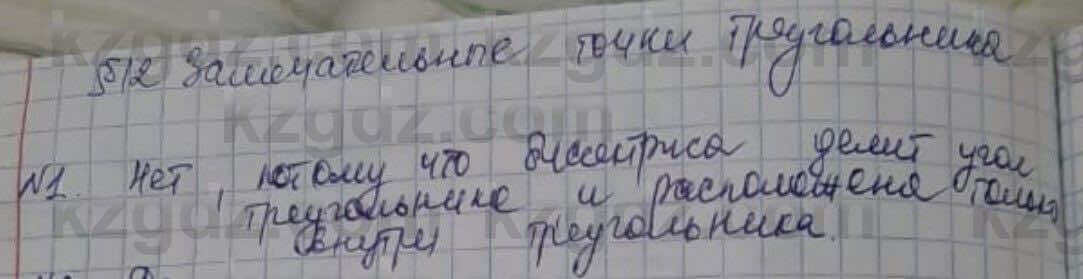 §12 Замечательные точки треугольника
№1. Нет, потому что биссектриса делит угол
треугольника и расположена только
внутри треугольника.
kzgdz.com